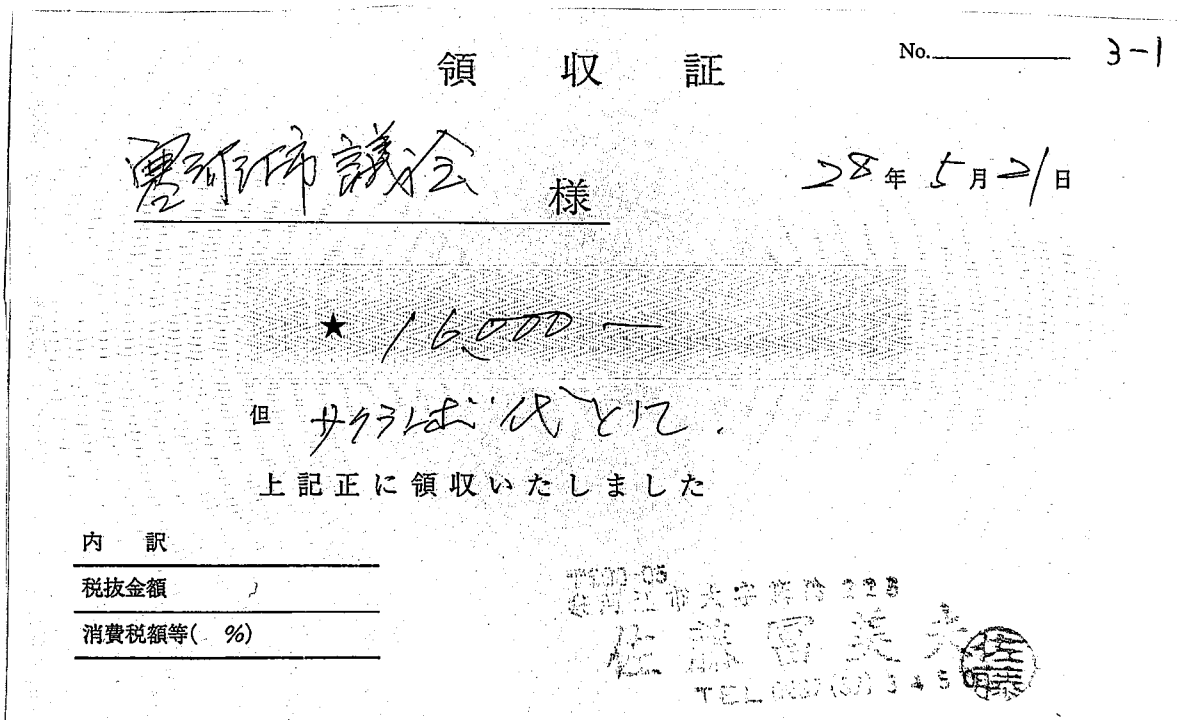 領収証
No. 3-1
寒河江市議会 様
28年5月21日
★ 16,000 —
但 サクランボ代として.
上記正に領収いたしました
内訳
税抜金額
消費税額等( %)
佐藤冨美夫
佐藤
TEL